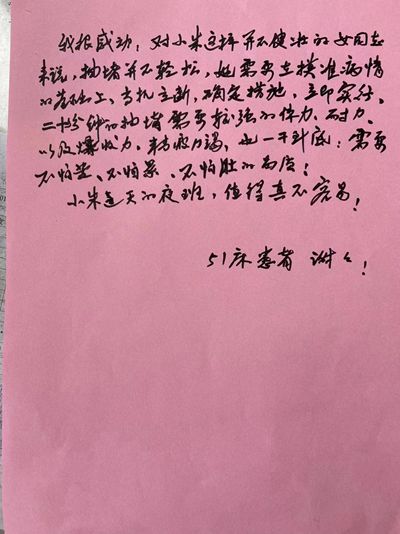 我很感动：对小朱这样并不健壮的女同志
来说，抽堵并不轻松，她需要在摸准病情
的基础上，当机立断，确定措施，立即实施，
二十分钟的抽堵需要较强的体力、耐力、
以及爆发力，精疲力竭，也一干到底；需要
不怕苦、不怕累、不怕脏的高度！
小朱连天的夜班，值得真不容易！
51床患者 谢谢！